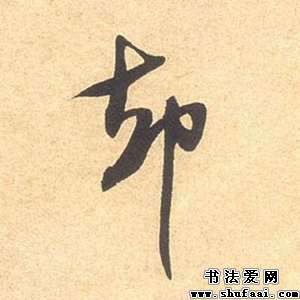 却
书法爱网
www.shufaai.com